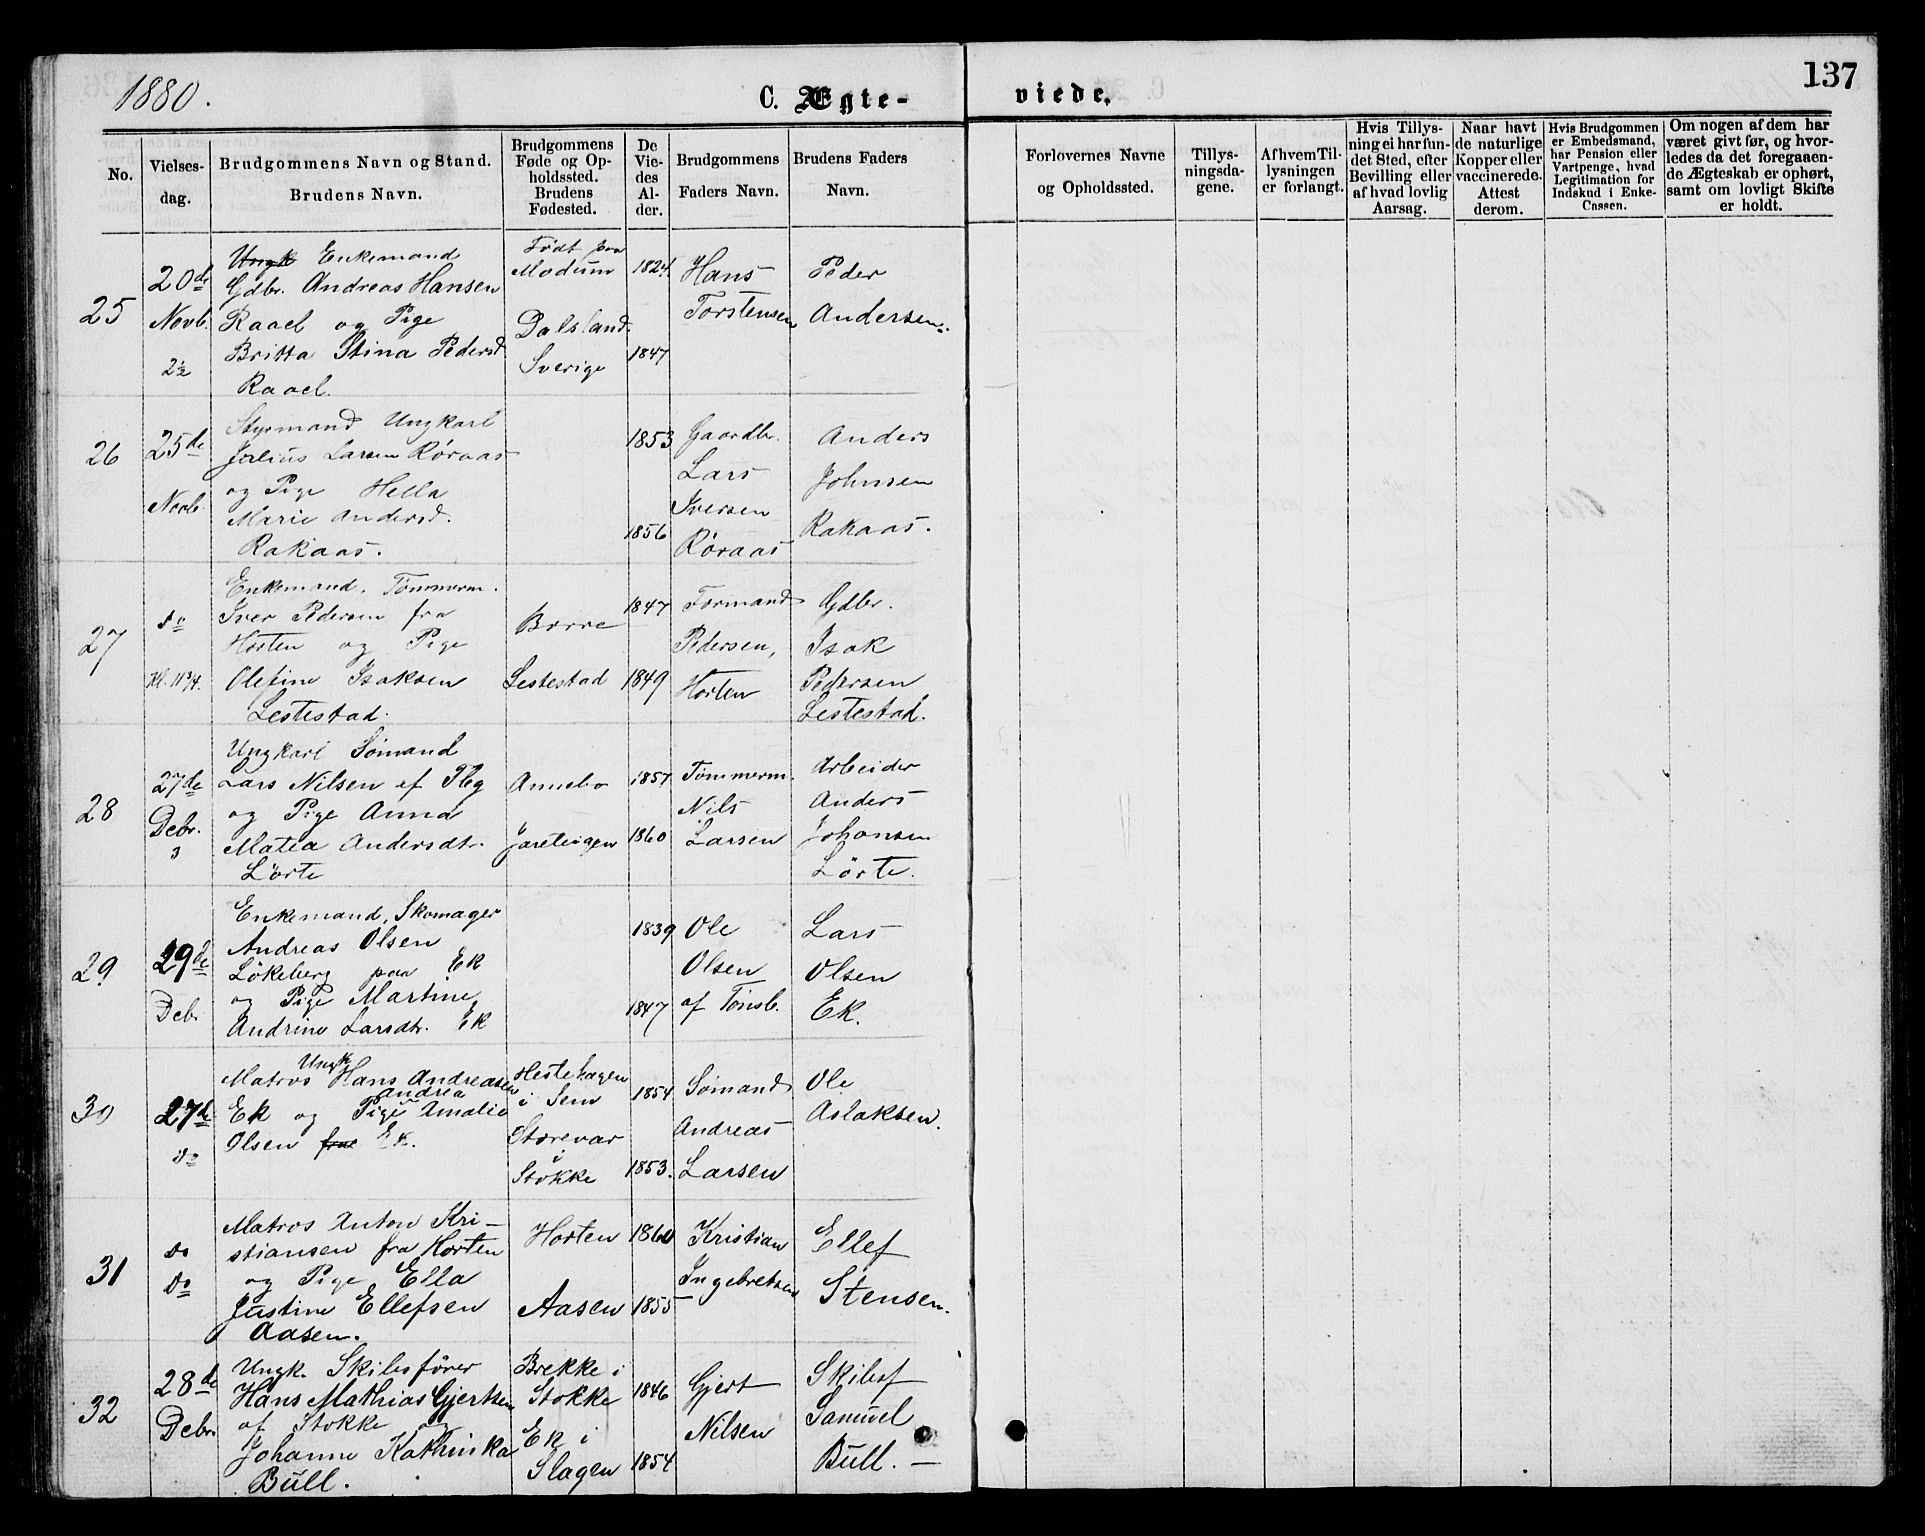 1880.
C. Ægte-
viede.
137
No.
Vielses-
dag.
Brudgommens Navn og Stand.
Brudens Navn.
Brudgommens
Føde og Op-
holdssted.
Brudens
Fødested.
De
Vie-
des
Al-
der.
Brudgommens
Faders Navn.
Brudens Faders
Navn.
Forlovernes Navne
og Opholdssted.
Tillys-
ningsda-
gene.
Af hvem Til-
lysningen
er forlangt.
Hvis Tillys-
ning ei har fun-
det Sted, efter
Bevilling eller
af hvad lovlig
Aarsag.
Naar havt
de naturlige
Kopper eller
vaccinerede.
Attest
derom.
Hvis Brudgommen
er Embedsmand,
har Pension eller
Vartpenge, hvad
Legitimation for
Indskud i Enke-
Cassen.
Om nogen af dem har
været givt før, og hvor-
ledes da det foregaaen-
de Ægteskab er ophørt,
samt om lovligt Skifte
er holdt.
25
20de
Novb.
2½
Ungk Enkemand
Gdbr. Andreas Hansen
Raael og Pige
Britta Stina Pedersd
Raael.
Født paa
Modum
Dalsland
Sverige
1824.
1847
Hans
Torstensen
Peder
Andersen.
26
25de
Novb.
Styrmand Ungkarl
Julius Larsen Røraas
og Pige Hella
Marie Andersd.
Rakaas.
1853
1856
Gaardbr.
Lars
Iversen
Røraas
Anders
Johnsen
Rakaas.
27
do
Kl. 11¾.
Enkemand. Tømmerm.
Iver Pedersen fra
Horten og Pige
Olefine Isaksen
Lestestad.
Borre
Lestestad
1847
1849
Formand
Pedersen,
Horten
Gdbr.
Isak
Pedersen
Lestestad.
28
27de
Debr.
3
Ungkarl Sømand
Lars Nilsen af Tbg
og Pige Anna
Matea Andersdtr.
Lörte
Annebo
Jareteigen
1857
1860
Tømmerm.
Nils
Larsen
Arbeider
Anders
Johansen
Lörte.
29
29de
Debr
Enkemand, Skomager
Andreas Olsen
Lökeberg paa Ek
og Pige Martine
Andrine Larsdtr. Ek
1839
1847
Ole
Olsen
af Tönsb.
Lars
Olsen
Ek.
30
27de
do
Ungk
Matros Hans Andreasen
Andrea
Ek og Pige Amalie
Olsen fra Ek.
Hestehagen
i Sem
Storevar
i
Stokke
1854
1853.
Sømand
Andreas
Larsen
Ole
Aslaksen.
31
do
do
Matros Anton Kri-
stiansen fra Horten
og Pige Ella
Justine Ellefsen
Aasen.
Horten
Aasen
1860
1855
Kristian
Ingebretsen
Ellef
Stensen.
32
28de
Debr.
Ungk. Skibsfører
Hans Mathias Gjertsen
af Stokke og
Johanne Kathinka
Bull.
Brekke i
Stokke
Ek i
Slagen
1846
1854
Gjert
Nilsen
Skibsf
Samuel
Bull. —